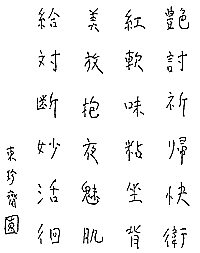 艶討祈帰快衛
紅軟味粘坐背
美放抱夜魅肌
給対断妙活徊
東珍齋